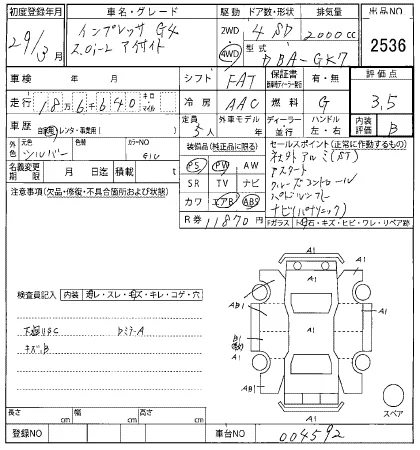 初度登録年月 車名・グレード 駆動 ドア数・形状 排気量 出品NO
29/3月 インプレッサ G4 2WD 4WD 4 SD 2000cc 2536
2.0i-L アイサイト 型式 DBA-GK7
車検 年 月 シフト FAT 保証書 有・無 評価点
走行 18万6千640 キロ マイル 冷房 AAC 燃料 G 3.5
車歴 自家・レンタ・事業用( ) 定員 5人 外車モデル年 ディーラー 並行 ハンドル 左・右 内装評価 B
外色 元色 シルバー カラーNO G1U 装備品(純正品に限る) セールスポイント(正常に作動するもの)
名義変更期限 月 日迄 積載 t PS PW AW
注意事項(欠品・修復・不具合箇所および状態) SR TV ナビ アスタート
カワ エアB ABS クルーズコントロール
R券 11870円 パドルシフト
ナビ(パナソニック)
Fガラス 石・キズ・ヒビ・ワレ・リペア跡
検査員記入 内装 ヨゴレ・スレ・キズ・キレ・コゲ・穴
下廻りSC
キズ.B
A1
A1
AB1
A1
B1
A1
AB1
A1
A1
スペア
長さ cm 幅 cm 高さ cm
登録NO 車台NO 004592